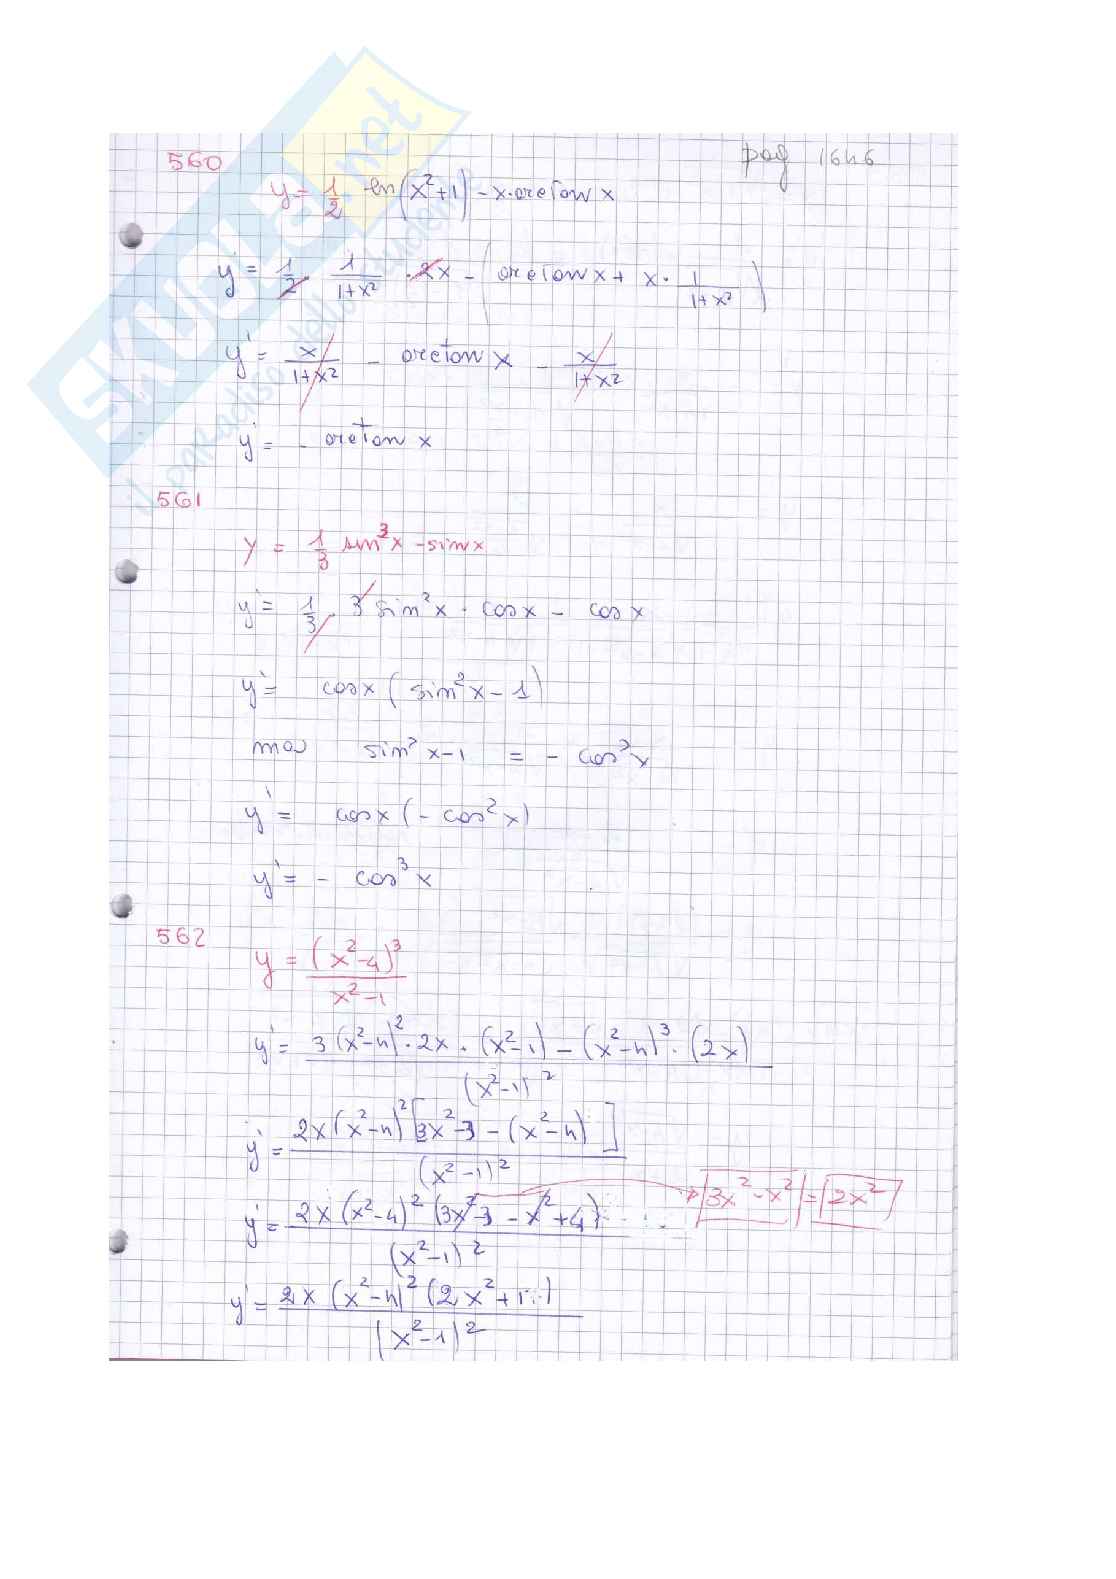 SKUOLA.net
il paradiso dello studente
pag 1646
560
y = 1/2 ln(x²+1) - x·arctan x
y' = 1/2 · 1/(1+x²) · 2x - (arctan x + x · 1/(1+x²))
y' = x/(1+x²) - arctan x - x/(1+x²)
y' = - arctan x
561
y = 1/3 sin³x - sin x
y' = 1/3 · 3 sin²x · cos x - cos x
y' = cos x (sin²x - 1)
ma sin²x - 1 = - cos²x
y' = cos x (- cos²x)
y' = - cos³x
562
y = (x²-4)³/(x²-1)
y' = 3(x²-4)²·2x·(x²-1) - (x²-4)³·(2x)/(x²-1)²
y' = 2x(x²-4)²[3x²-3-(x²-4)]/(x²-1)²
y' = 2x(x²-4)²(3x²-3-x²+4)/(x²-1)² → 3x²-x² = 2x²
y' = 2x(x²-4)²(2x²+1)/(x²-1)²